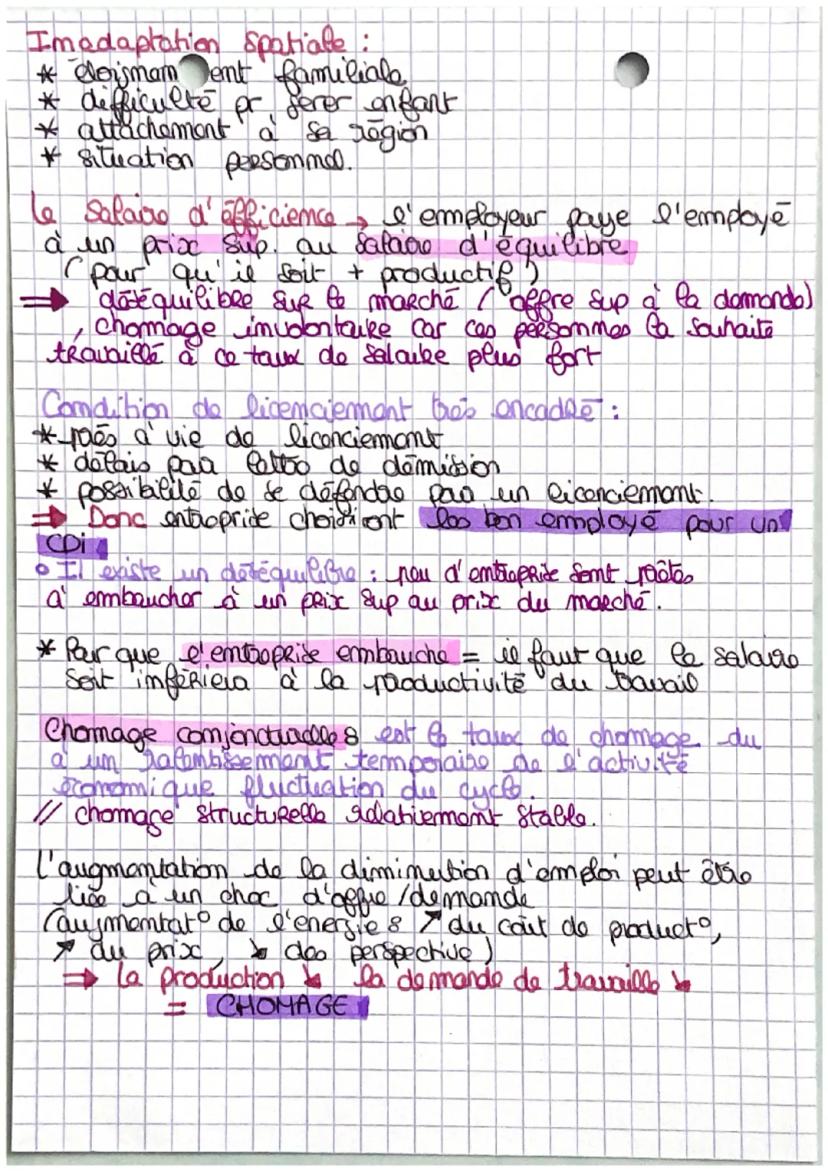 Imadaptation Spatiale :
* éloignement familiale
* difficulté pr gerer enfant
* attachement à sa région
* situation personnel.
Le Salaire d'éfficience → l'employeur paye l'employé
à un prix sup. au salaire d'équilibre
(pour qu'il soit + productif)
⇒ déséquilibre sur le marché (offre sup à la demande)
, chomage involontaire car ces personnes la souhaite
travaillé à ce taux de salaire plus fort
Condition de licenciement très encadré :
* préa à vie de licenciement
* délais par lettre de démission
* possibilité de se défendre par un licenciement.
⇒ Donc entreprise choisirient les bon employé pour un
CDi
• Il existe un déséquilibre : peu d'entreprise sont prêtes
a embaucher à un prix sup au prix du marché.
* Par que l'entreprise embauche = il faut que le salaire
soit inférieur à la productivité du travail
Chomage conjoncturelle : est le taux de chomage du
à un ralentissement temporaire de l'activité
économique fluctuation du cycle.
// chomage structurelle relativement stable.
L'augmentation de la diminution d'emploi peut être
liée à un choc d'offre/demande
(augmentat° de l'energie : ↗ du coût de product°,
↗ du prix, ↘ des perspective)
⇒ la production ↘ la demande de travaille ↘
= CHOMAGE